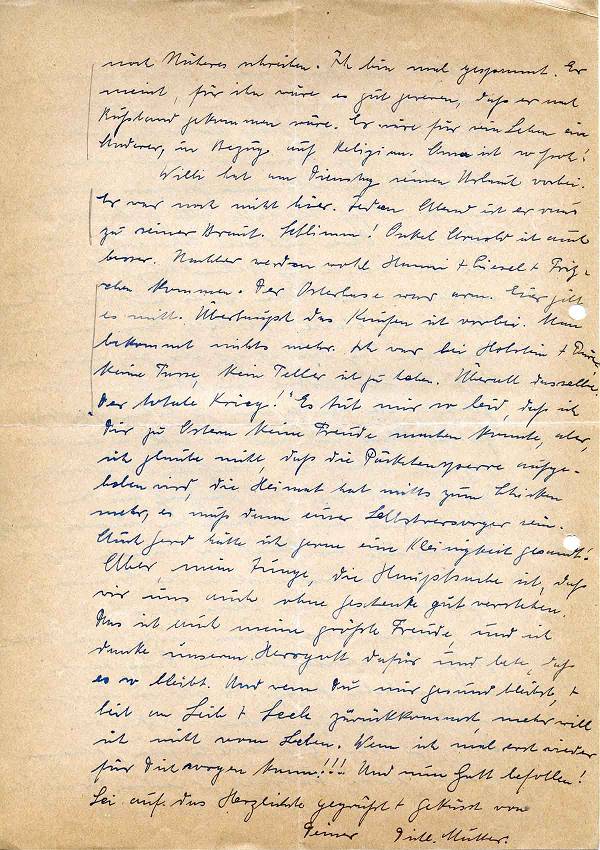 noch Näheres schreiben. Ich bin mal gespannt. Er
meint, für ihn wäre es gut gewesen, daß er nach
Rußland gekommen wäre. Er wäre für sein Leben ein
Anderer, in Bezug auf Religion. Oma ist so froh!
Willi hat am Dienstag seinen Urlaub vorbei.
Er war noch nicht hier. Jeden Abend ist er raus
zu seiner Braut. Schlimm! Onkel Arnold ist auch
besser. Nachher werden wohl Hanni + Liesel + Fritz-
chen kommen. Der Osterhase war arm. Eier gibt
es nicht. Überhaupt das Kaufen ist vorbei. Man
bekommt nichts mehr. Ich war bei Holstein +
Keine Tasse, kein Teller ist zu haben. Überall dasselbe.
"Der totale Krieg!" Es tut mir so leid, daß ich
Dir zu Ostern keine Freude machen konnte, aber,
ich glaube nicht, daß die Päckchensperre aufge-
hoben wird, die Heimat hat nichts zum Schicken
mehr, es muß dann einer Selbstversorger sein.
Auch Gerd hätte ich gerne eine Kleinigkeit gesandt!
Aber, mein Junge, die Hauptsache ist, daß
wir uns auch ohne Geschenke gut verstehen.
Das ist auch meine größte Freude, und ich
danke unserem Herrgott dafür und bete, daß
es so bleibt. Und wenn Du nur gesund bleibst, +
heil an Leib + Seele zurückkommst, mehr will
ich nicht vom Leben. Wenn ich mal erst wieder
für Dich sorgen kann!!! Und nun Gott befohlen!
Sei aufs das Herzlichste gegrüßt + geküsst von
Deiner Dichl. Mutter.